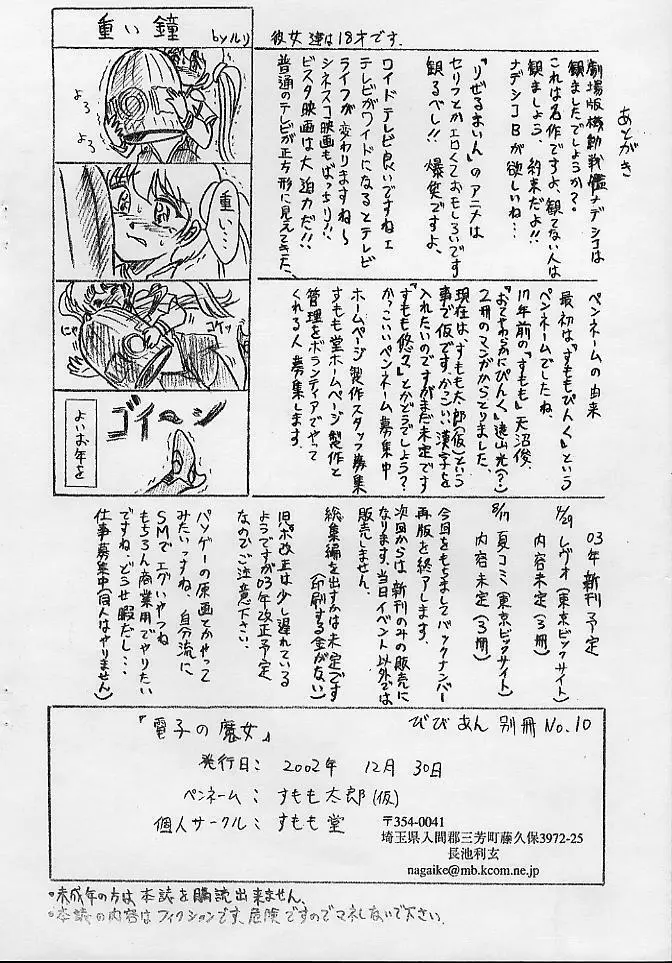 重い鐘
byルリ
よろ
よろ
重い…
にゃ
コケッ
ゴイ〜ン
よいお年を
彼女達は18才です。
あとがき
劇場版機動戦艦ナデシコは
観ましたでしょうか?
これは名作ですよ、観てない人は
観ましょう、約束だよ!!
ナデシコBが欲しいね…
『りぜるまいん』のアニメは
セリフとかエロくておもしろいです
観るべし!!爆笑ですよ、
ワイドテレビ良いですねェ
テレビがワイドになるとテレビ
ライフが変わりますね〜
シネスコ映画もばっちり!!
ビスタ映画は大迫力だ!!
普通のテレビが正方形に見えてきた、
ペンネームの由来
最初は『すももぴんく』という
ペンネームでしたね、
17年前の『すもも』天沼俊、
『おてやわらかにぴんく』遠山光(?)
2冊のマンガからとりました、
現在は、すもも太郎(仮)という
事で仮です、かっこいい漢字を
入れたいのですがまだ未定です
『すもも悠々』とかどうでしょう?
かっこいいペンネーム募集中
ホームページ製作スタッフ募集
すもも堂ホームページ製作と
管理をボランティアでやって
くれる人募集します。
03年新刊予定
4/29 レヴォ(東京ビックサイト)
内容未定(3冊)
8/17 夏コミ(東京ビックサイト)
内容未定(3冊)
今回をもちましてバックナンバー
再版を終了します。
次回からは、新刊のみの販売に
なります。当日イベント以外では
販売しません。
総集編を出すかは未定です
(印刷する金がない)
児ポ改正は少し遅れている
ようですが03年改正予定
なのでご注意下さい。
パソゲーの原画とかやって
みたいっすね、自分流に
SMでエグいやつね
もちろん商業用でやりたい
ですね、どうせ暇だし…
仕事募集中(同人はやりません)
『電子の魔女』
びびあん 別冊 No.10
発行日: 2002年 12月 30日
ペンネーム: すもも太郎(仮)
個人サークル: すもも堂
〒354-0041
埼玉県入間郡三芳町藤久保3972-25
長池利玄
nagaike@mb.kcom.ne.jp
•未成年の方は、本誌を購読出来ません。
•本誌の内容はフィクションです、危険ですのでマネしないで下さい。